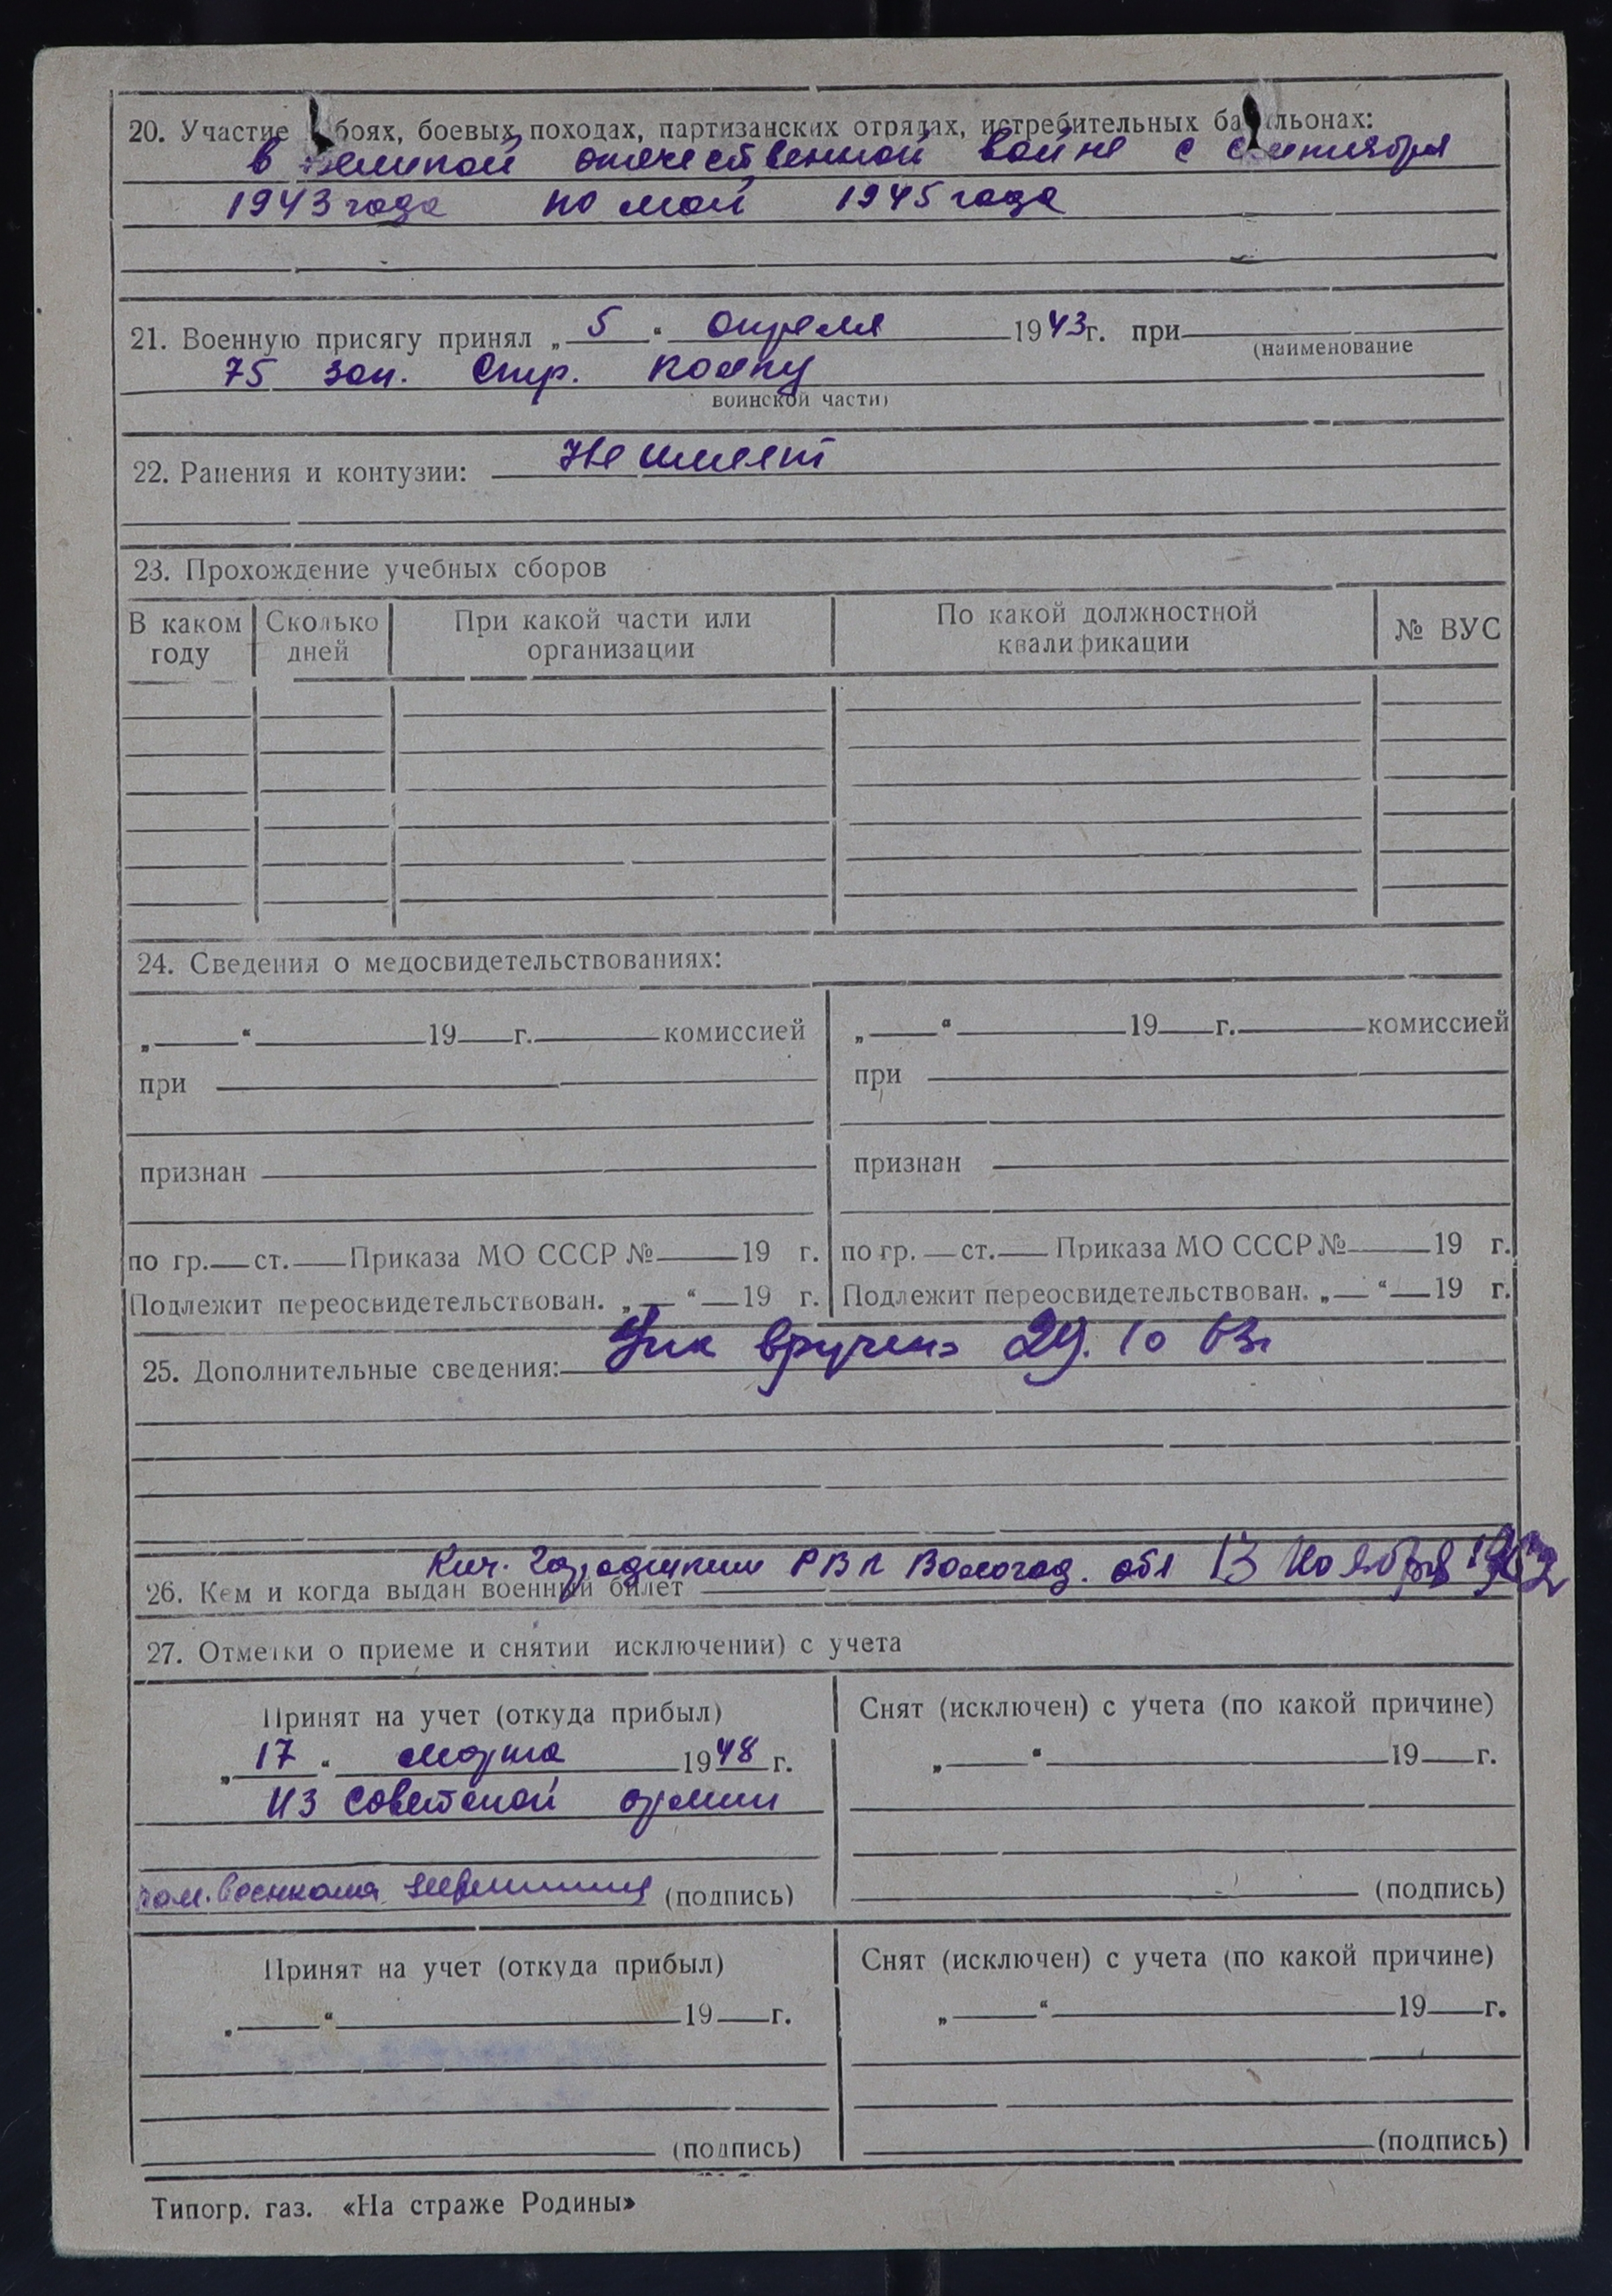 20. Участие боях, боевых походах, партизанских отрядах, истребительных ба льонах:
в великой отечественной войне с сентября
1943 года по май 1945 года
21. Военную присягу принял „ 5 “ апреля 1943 г. при
(наименование
75 зап. Стр. полку
воинской части)
22. Ранения и контузии: Не имеет
23. Прохождение учебных сборов
В каком году Сколько дней При какой части или организации По какой должностной квалификации № ВУС
24. Сведения о медосвидетельствованиях:
„ “ 19 г. комиссией „ “ 19 г. комиссией
при при
признан признан
по гр. ст. Приказа МО СССР № 19 г. по гр. ст. Приказа МО СССР № 19 г.
Подлежит переосвидетельствован. „ “ 19 г. Подлежит переосвидетельствован. „ “ 19 г.
25. Дополнительные сведения: вручен 29. 10 63г
Кич. Городецким РВК Вологод. обл 13 Ноября 1963
26. Кем и когда выдан военный билет
27. Отметки о приеме и снятии исключении) с учета
Принят на учет (откуда прибыл) Снят (исключен) с учета (по какой причине)
„ 17 “ марта 1948 г. „ “ 19 г.
из советской армии
пом. военкома (подпись) (подпись)
Принят на учет (откуда прибыл) Снят (исключен) с учета (по какой причине)
„ “ 19 г. „ “ 19 г.
(подпись) (подпись)
Типогр. газ. «На страже Родины»